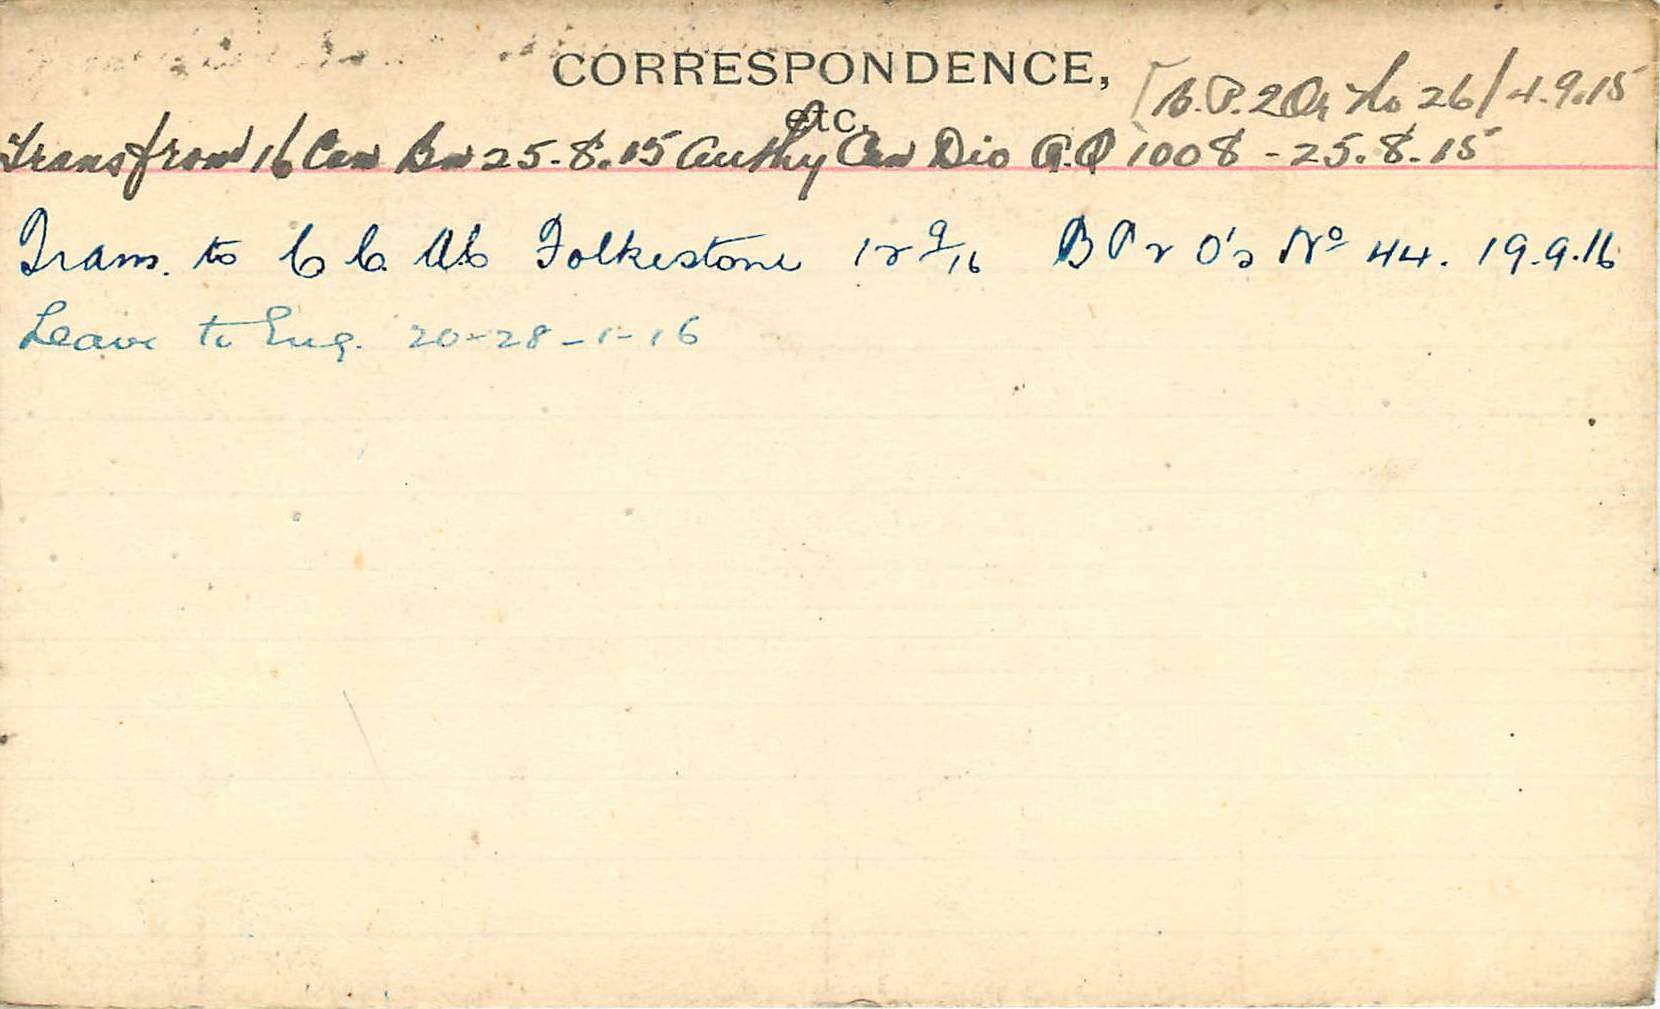 CORRESPONDENCE,
etc.
[B.P.2Or No 26/4.9.15
Trans from 16 Can Bn 25.8.15 Authy Can Div A.Q 1008 - 25.8.15
Trans. to C C Folkestone 12 9/16 B P 2 O's Nº 44. 19.9.16
Leave to Eng. 20-28-1-16